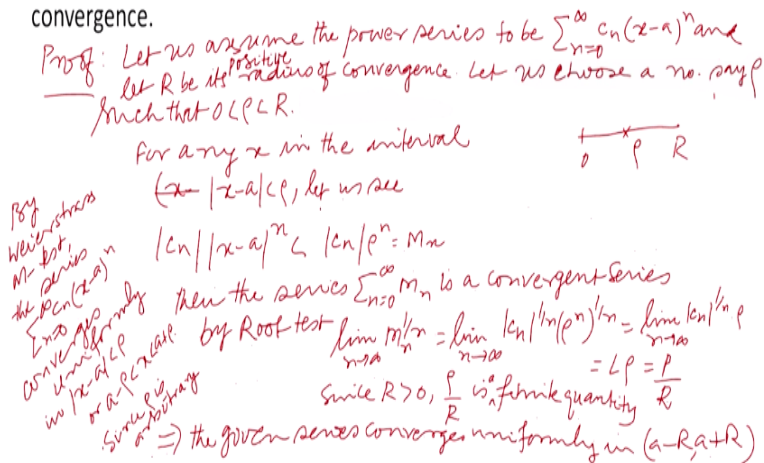 convergence.
Proof: Let us assume the power series to be ∑_{n=0}^{∞} c_n(x-a)^n and
let R be its positive radius of convergence. Let us choose a no. say ρ
such that 0<ρ<R.
For any x in the interval
|x-a|<ρ, let us see
|c_n||x-a|^n < |c_n|ρ^n = M_n
then the series ∑_{n=0}^{∞} M_n is a convergent series
by Root test lim_{n→∞} M_n^{1/n} = lim_{n→∞} |c_n|^{1/n}(ρ^n)^{1/n} = lim_{n→∞} |c_n|^{1/n} ρ
= Lρ = ρ/R
Since R>0, ρ/R is a finite quantity
⇒ the given series converges uniformly in (a-R, a+R)
0 ρ R
By
Weierstrass
M-test,
the series
∑_{n=0}^{∞} c_n(x-a)^n
converges
uniformly
in |x-a|<ρ
or a-ρ<x<a+ρ.
Since ρ is
arbitrary